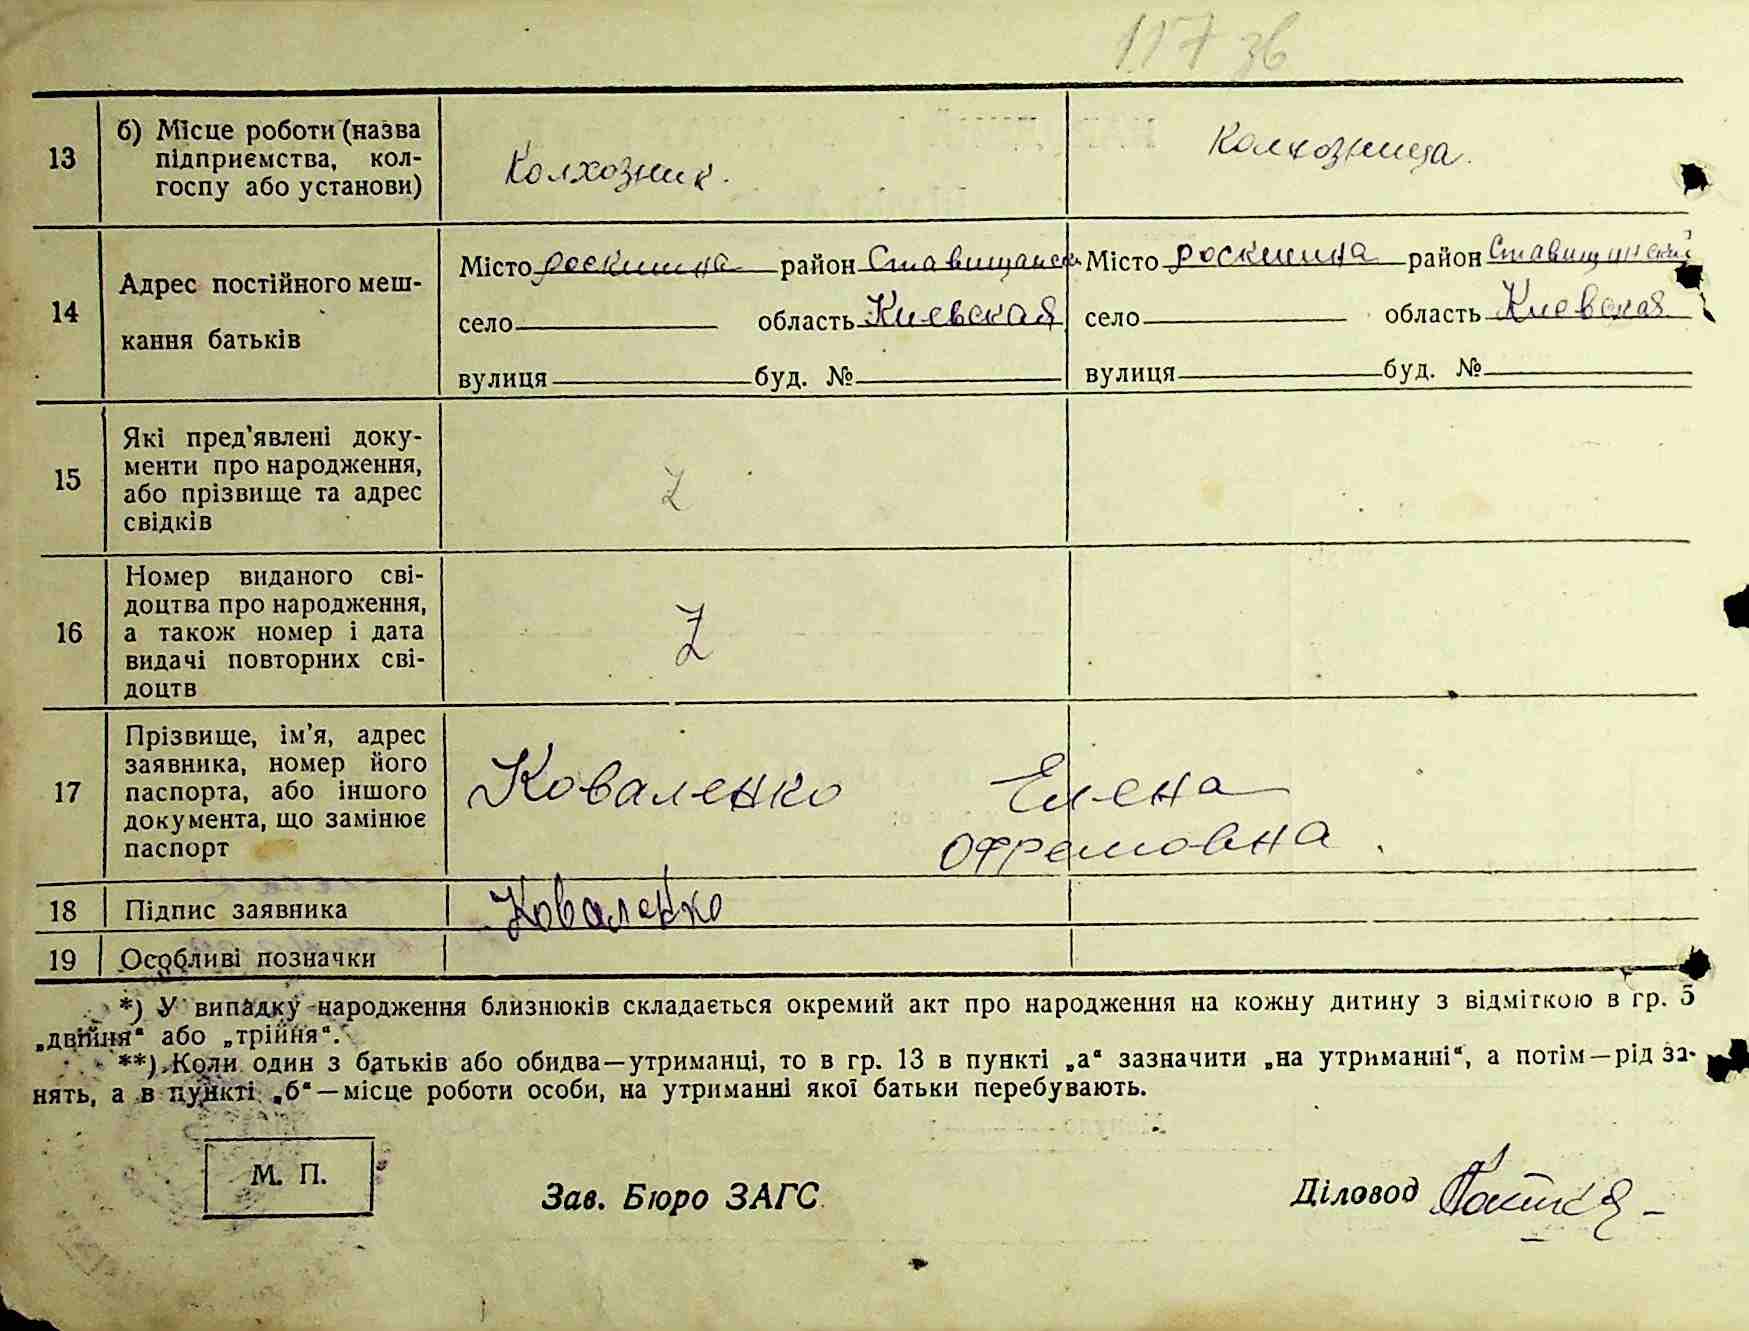 117 зв
13
б) Місце роботи (назва
підприємства, кол-
госпу або установи)
Колхозник.
Колхозница.
14
Адрес постійного меш-
кання батьків
Місто роскишна район Ставищанск
село область Киевская
вулиця буд. №
Місто роскишна район Ставищанский
село область Киевская
вулиця буд. №
15
Які пред'явлені доку-
менти про народження,
або прізвище та адрес
свідків
Z
16
Номер виданого сві-
доцтва про народження,
а також номер і дата
видачі повторних сві-
доцтв
Z
17
Прізвище, ім'я, адрес
заявника, номер його
паспорта, або іншого
документа, що замінює
паспорт
Коваленко Елена
Офремовна.
18 Підпис заявника Коваленко
19 Особливі позначки
*) У випадку народження близнюків складається окремий акт про народження на кожну дитину з відміткою в гр. 5
„двійня“ або „трійня“.
**) Коли один з батьків або обидва—утриманці, то в гр. 13 в пункті „а“ зазначити „на утриманні“, а потім—рід за-
нять, а в пункті „б“—місце роботи особи, на утриманні якої батьки перебувають.
М. П.
Зав. Бюро ЗАГС
Діловод